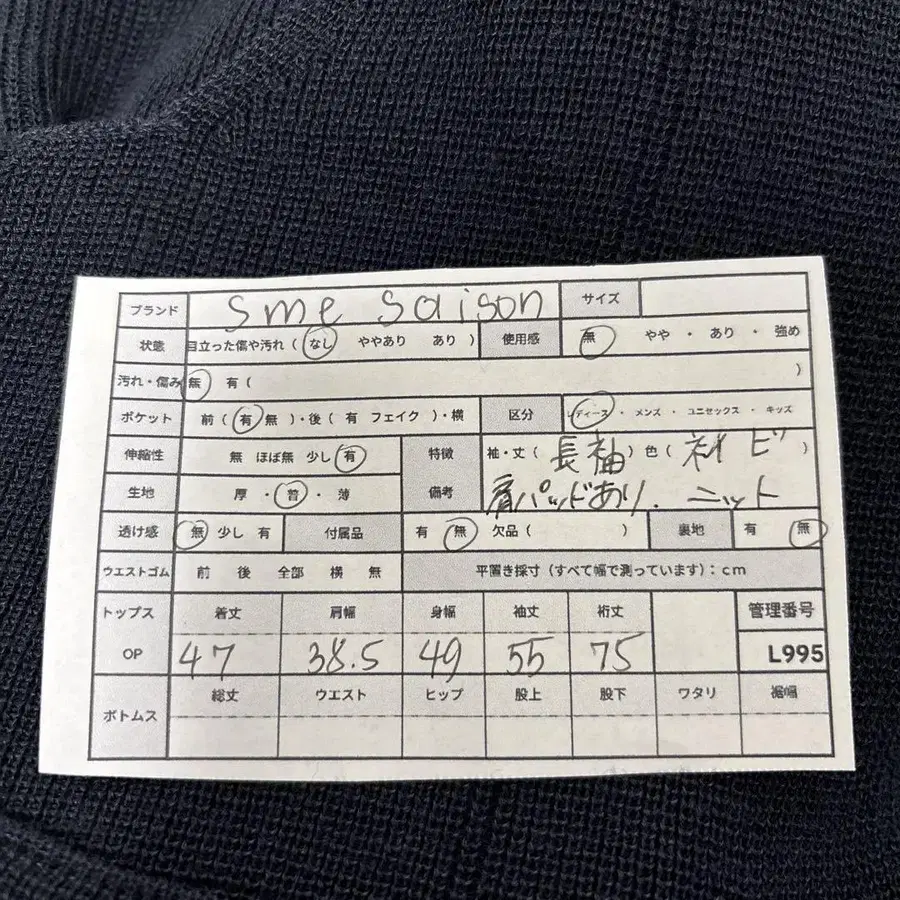 ブランド sme saison サイズ
状態 目立った傷や汚れ ( なし ややあり あり ) 使用感 無 やや ・ あり ・ 強め
汚れ・傷み 無 有 ( )
ポケット 前 ( 有 無 )・後 ( 有 フェイク )・横 区分 レディース ・ メンズ ・ ユニセックス ・ キッズ
伸縮性 無 ほぼ無 少し 有 特徴 袖・丈 ( 長袖 ) 色 ( ネイビ )
生地 厚 ・ 普 ・ 薄 備考 肩パッドあり. ニット
透け感 無 少し 有 付属品 有 無 欠品 ( ) 裏地 有 無
ウエストゴム 前 後 全部 横 無 平置き採寸 (すべて幅で測っています) : cm
トップス 着丈 肩幅 身幅 袖丈 裄丈 管理番号
OP 47 38.5 49 55 75 L995
ボトムス 総丈 ウエスト ヒップ 股上 股下 ワタリ 裾幅